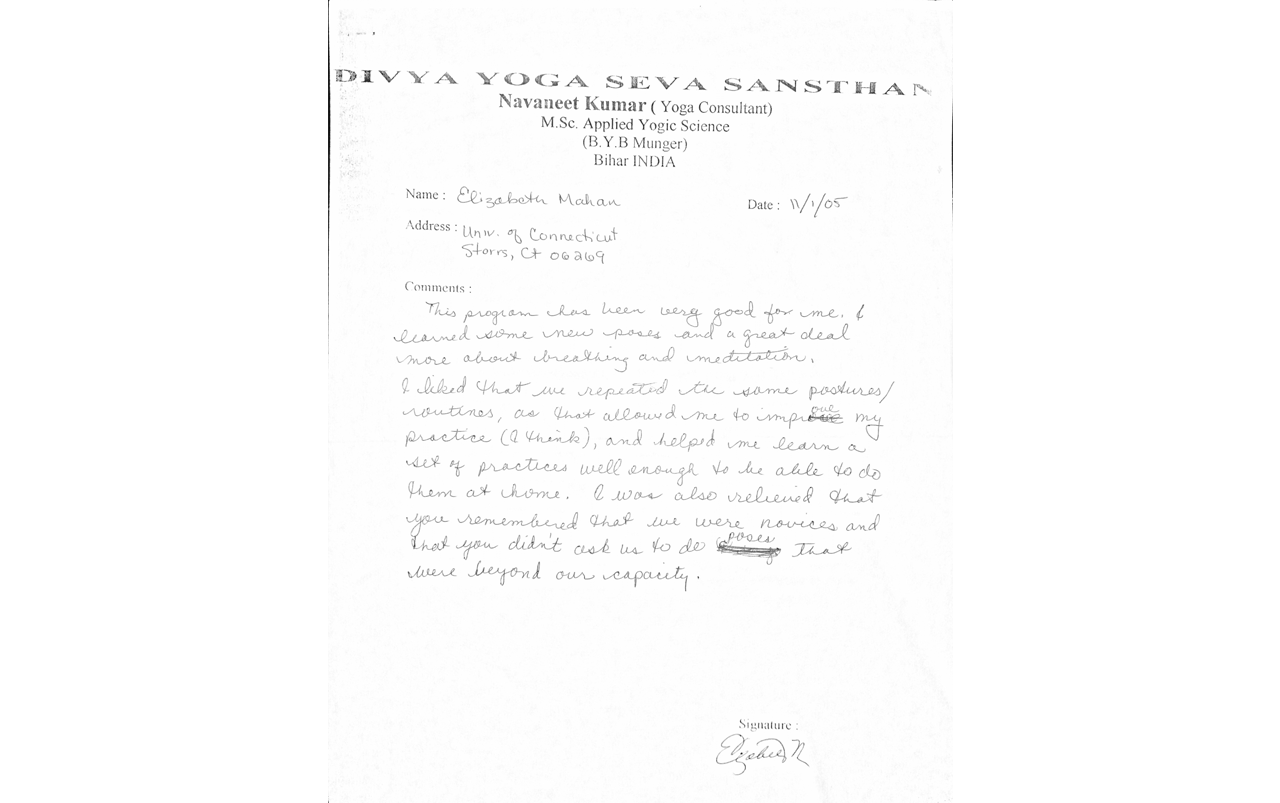 DIVYA YOGA SEVA SANSTHAN
Navaneet Kumar ( Yoga Consultant)
M.Sc. Applied Yogic Science
(B.Y.B Munger)
Bihar INDIA
Name : Elizabeth Mahan
Date : 11/1/05
Address : Univ. of Connecticut
Storrs, Ct 06269
Comments :
This program has been very good for me. I
learned some new poses and a great deal
more about breathing and meditation.
I liked that we repeated the same postures/
routines, as that allowed me to improve my
practice (I think), and helped me learn a
set of practices well enough to be able to do
them at home. I was also relieved that
you remembered that we were novices and
that you didn't ask us to do poses that
were beyond our capacity.
Signature :